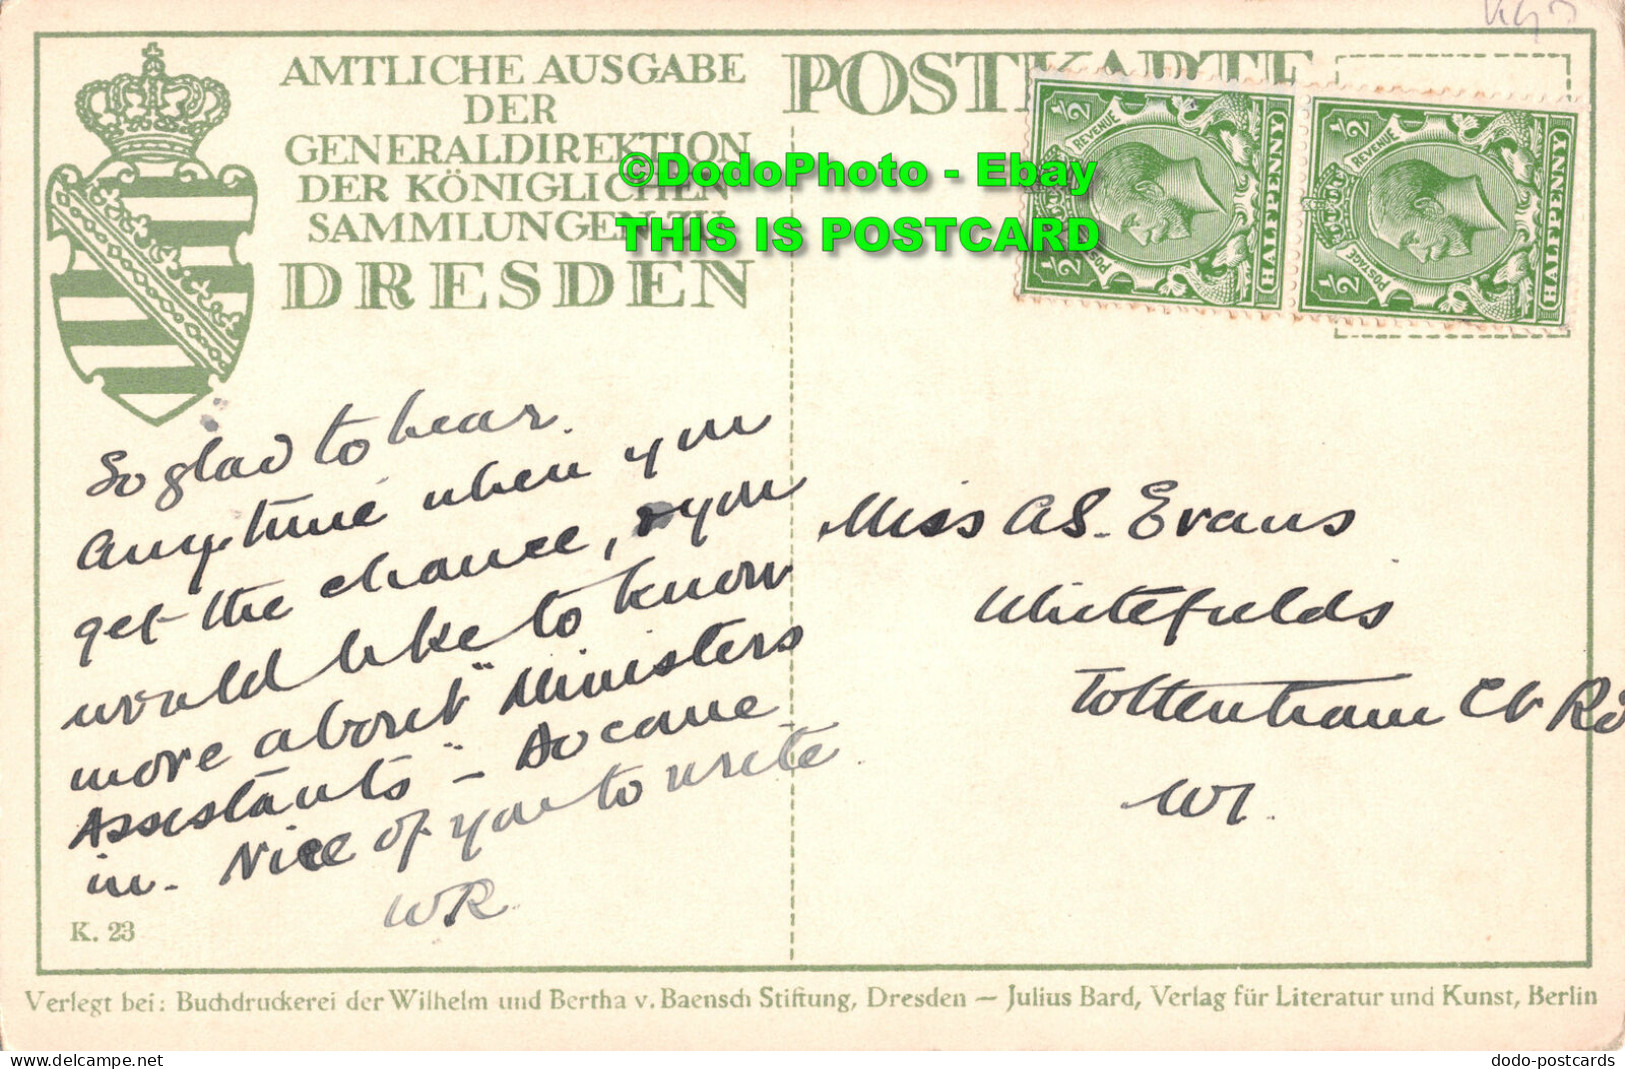 AMTLICHE AUSGABE
DER
GENERALDIREKTION
DER KÖNIGLICHEN
SAMMLUNGEN ZU
DRESDEN
POSTKARTE
©DodoPhoto - Ebay
THIS IS POSTCARD
½ REVENUE
½ POSTAGE
HALFPENNY
½ REVENUE
½ POSTAGE
HALFPENNY
So glad to hear.
Any time when you
get the chance, & you
would like to know
more about "Ministers
Assistants" - Do
in. Nice of you to write.
WR
Miss A S. Evans
Whitefields
Tottenham Ct Rd
W1.
K. 23
Verlegt bei: Buchdruckerei der Wilhelm und Bertha v. Baensch Stiftung, Dresden — Julius Bard, Verlag für Literatur und Kunst, Berlin
delcampe.net
dodo-postcards